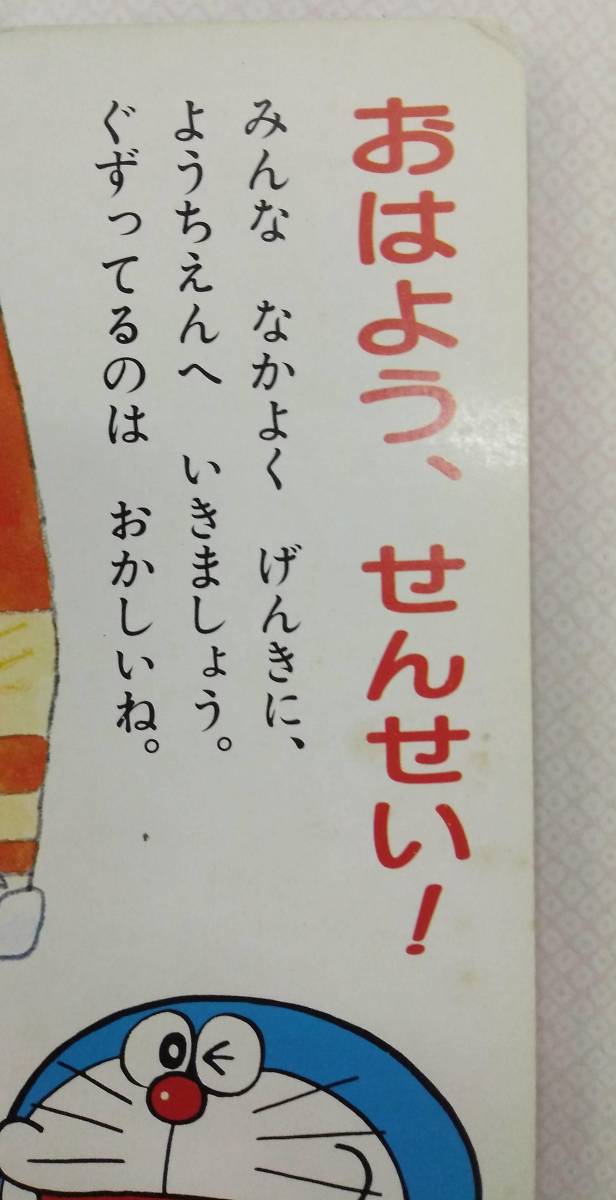 おはよう、せんせい!
みんな なかよく げんきに、
ようちえんへ いきましょう。
ぐずってるのは おかしいね。